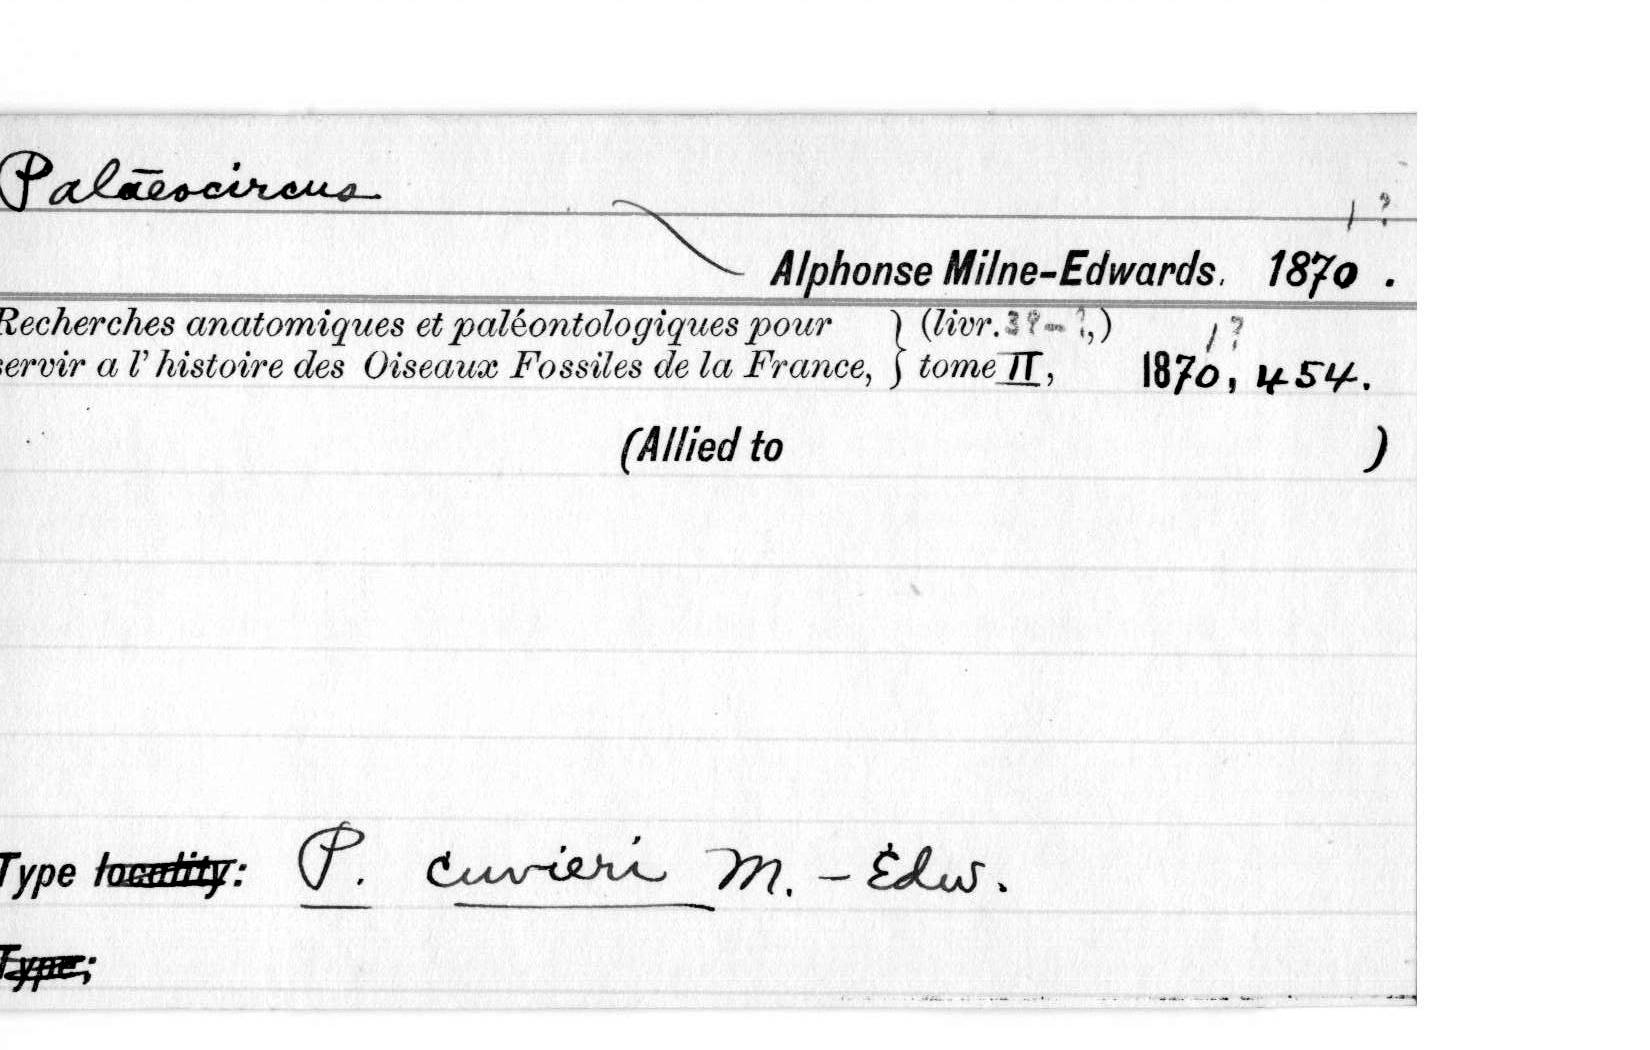 Palaeocircus
1?
Alphonse Milne-Edwards. 1870.
Recherches anatomiques et paléontologiques pour } (livr. 39-?,) 1?
servir a l'histoire des Oiseaux Fossiles de la France, } tome II, 1870, 454.
(Allied to )
Type locality: P. cuvieri M.-Edw.
Type;